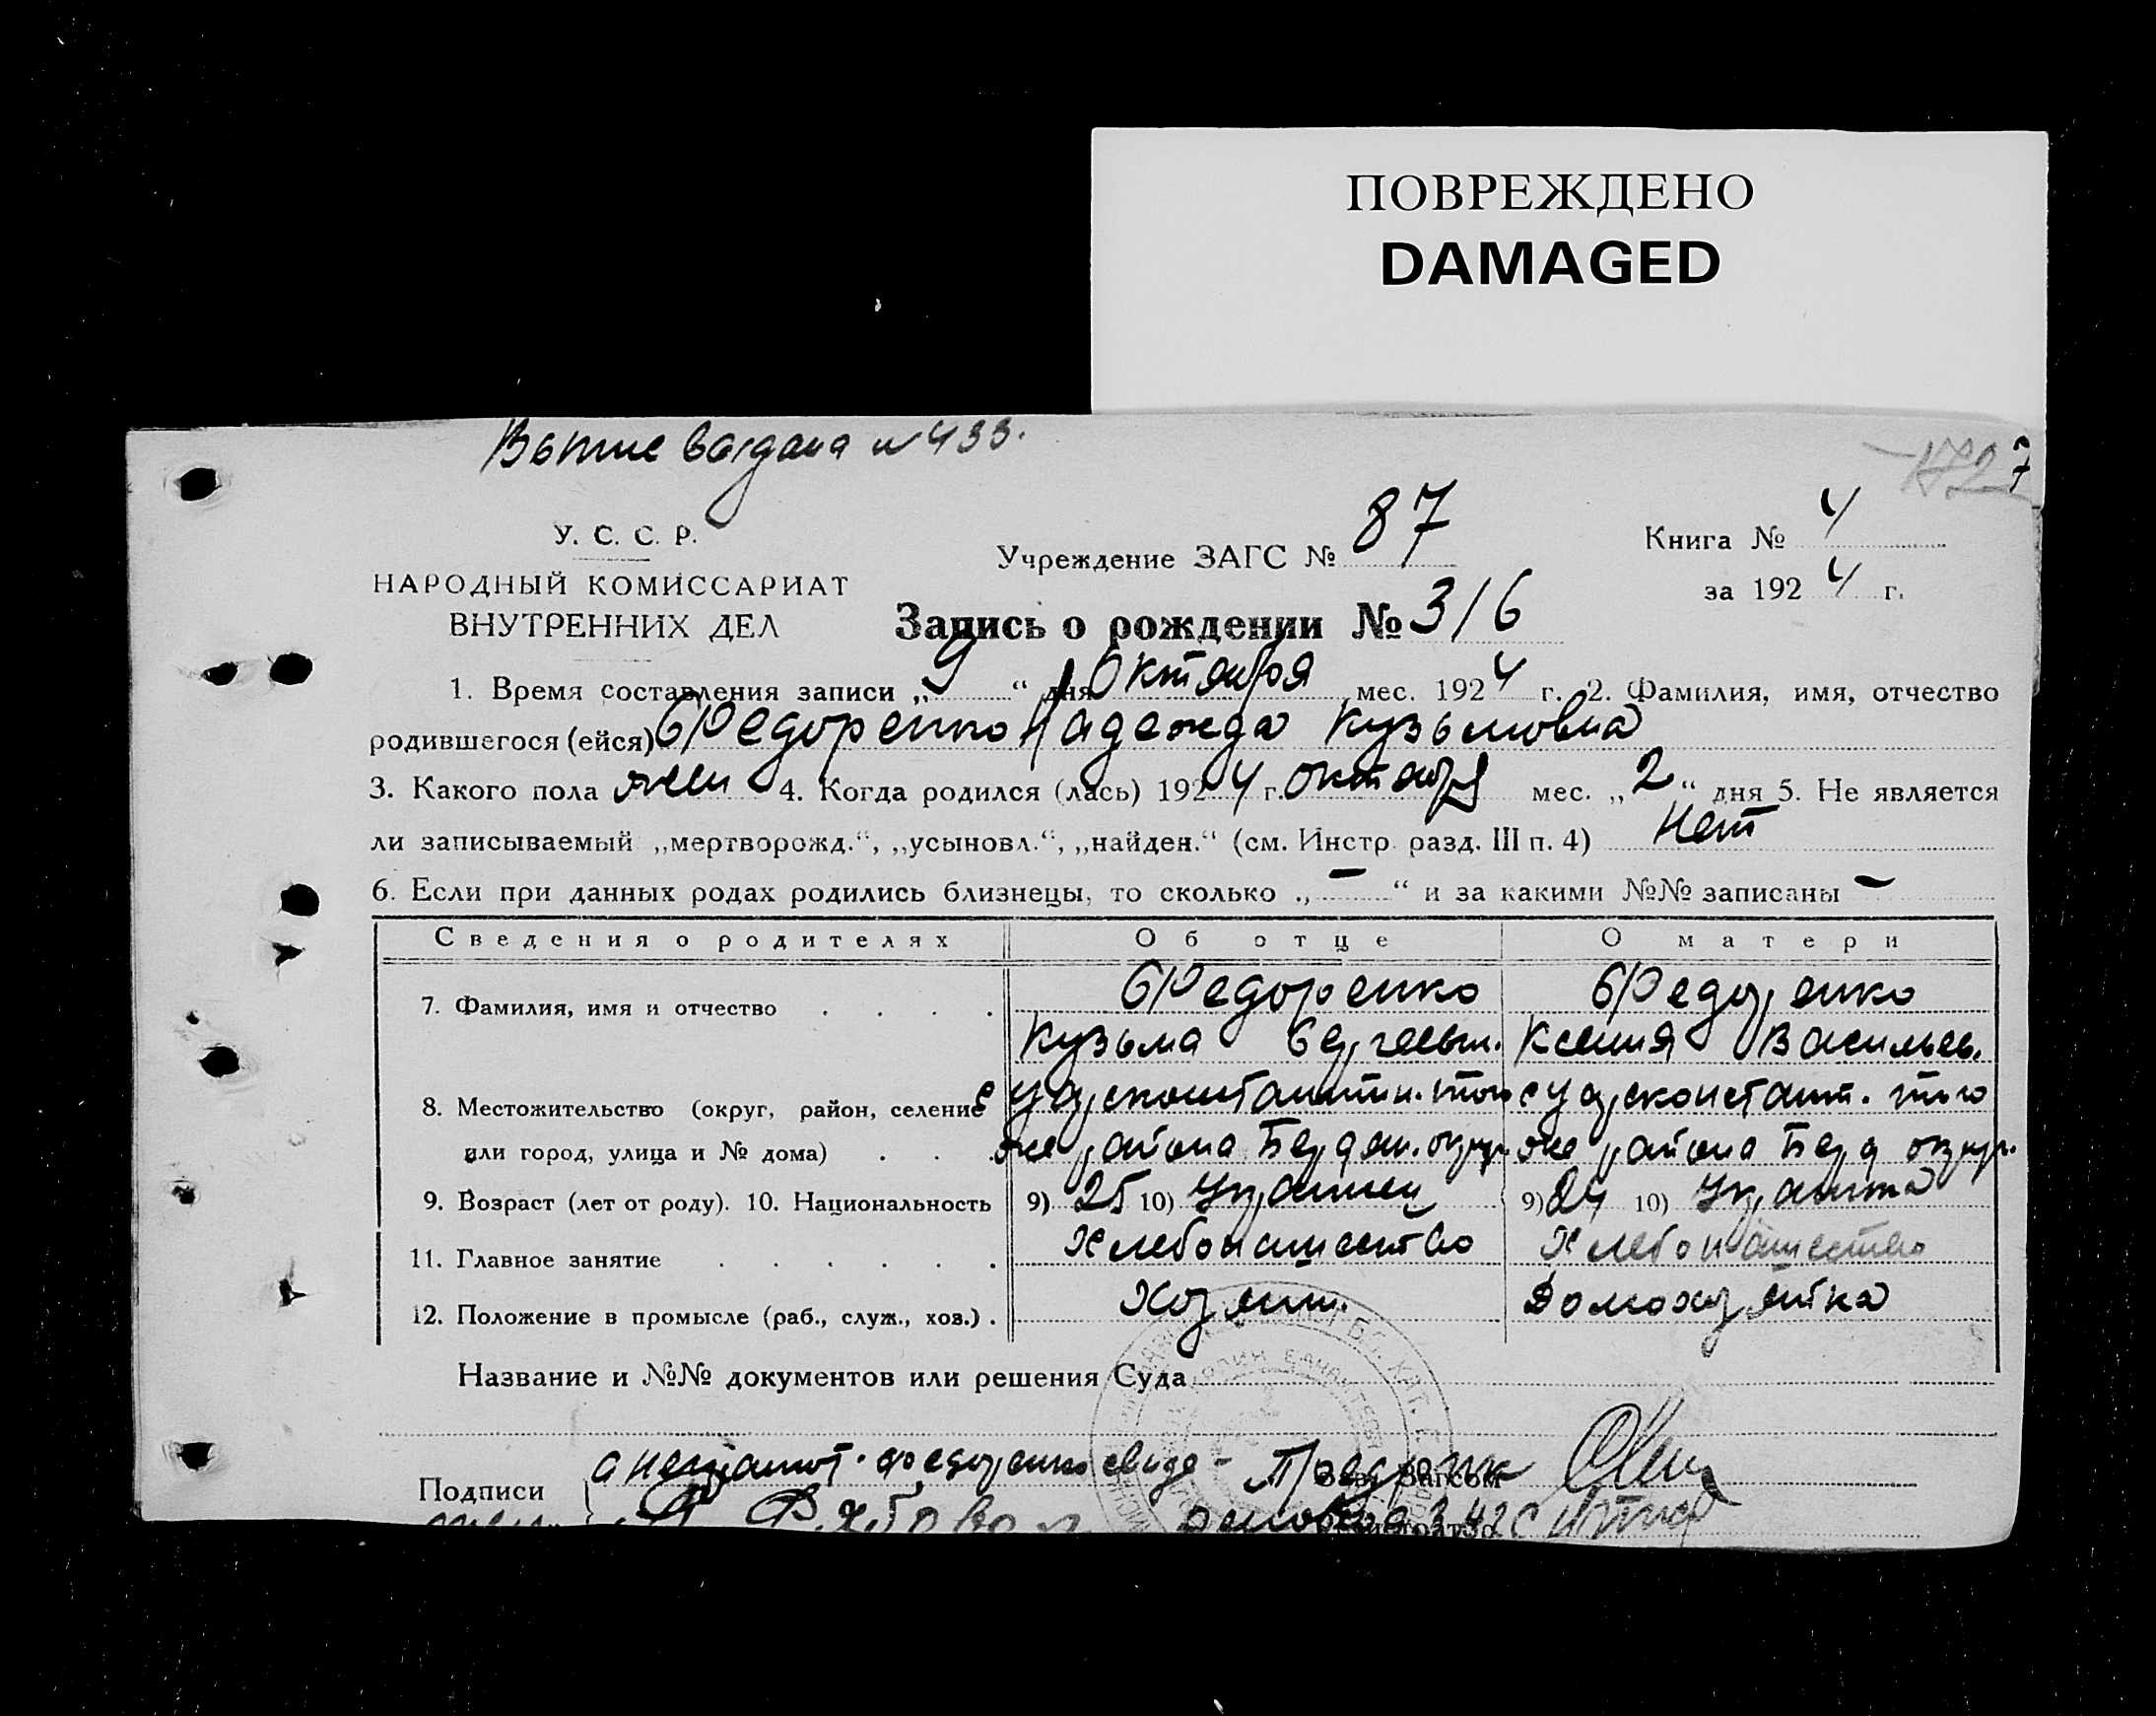 ПОВРЕЖДЕНО
DAMAGED
7
№ 433.
У. С. С. Р.
НАРОДНЫЙ КОМИССАРИАТ
ВНУТРЕННИХ ДЕЛ
Учреждение ЗАГС № 87
Книга № 4
за 1924 г.
Запись о рождении № 316
1. Время составления записи „9“ дня Октября мес. 1924 г. 2. Фамилия, имя, отчество
родившегося (ейся) Федоренко Надежда Кузьмовна
3. Какого пола жен 4. Когда родился (лась) 1924 г. октября мес. „2“ дня 5. Не является
ли записываемый „мертворожд.“, „усыновл.“, „найден.“ (см. Инстр. разд. III п. 4) Нет
6. Если при данных родах родились близнецы, то сколько „—“ и за какими №№ записаны —
Сведения о родителях Об отце О матери
7. Фамилия, имя и отчество . . . . Федоренко Федоренко
Кузьма Сергеевич. Ксения Васильев.
8. Местожительство (округ, район, селение
или город, улица и № дома) . . . же района Бердян. округ. же района Берд округ.
9. Возраст (лет от роду). 10. Национальность 9) 25 10) Украинец 9) 24 10) Украинка
11. Главное занятие . . . . . . Хлебопашество Хлебопашество
12. Положение в промысле (раб., служ., хоз.) . Хозяин. Домохозяйка
Название и №№ документов или решения Суда
Подписи